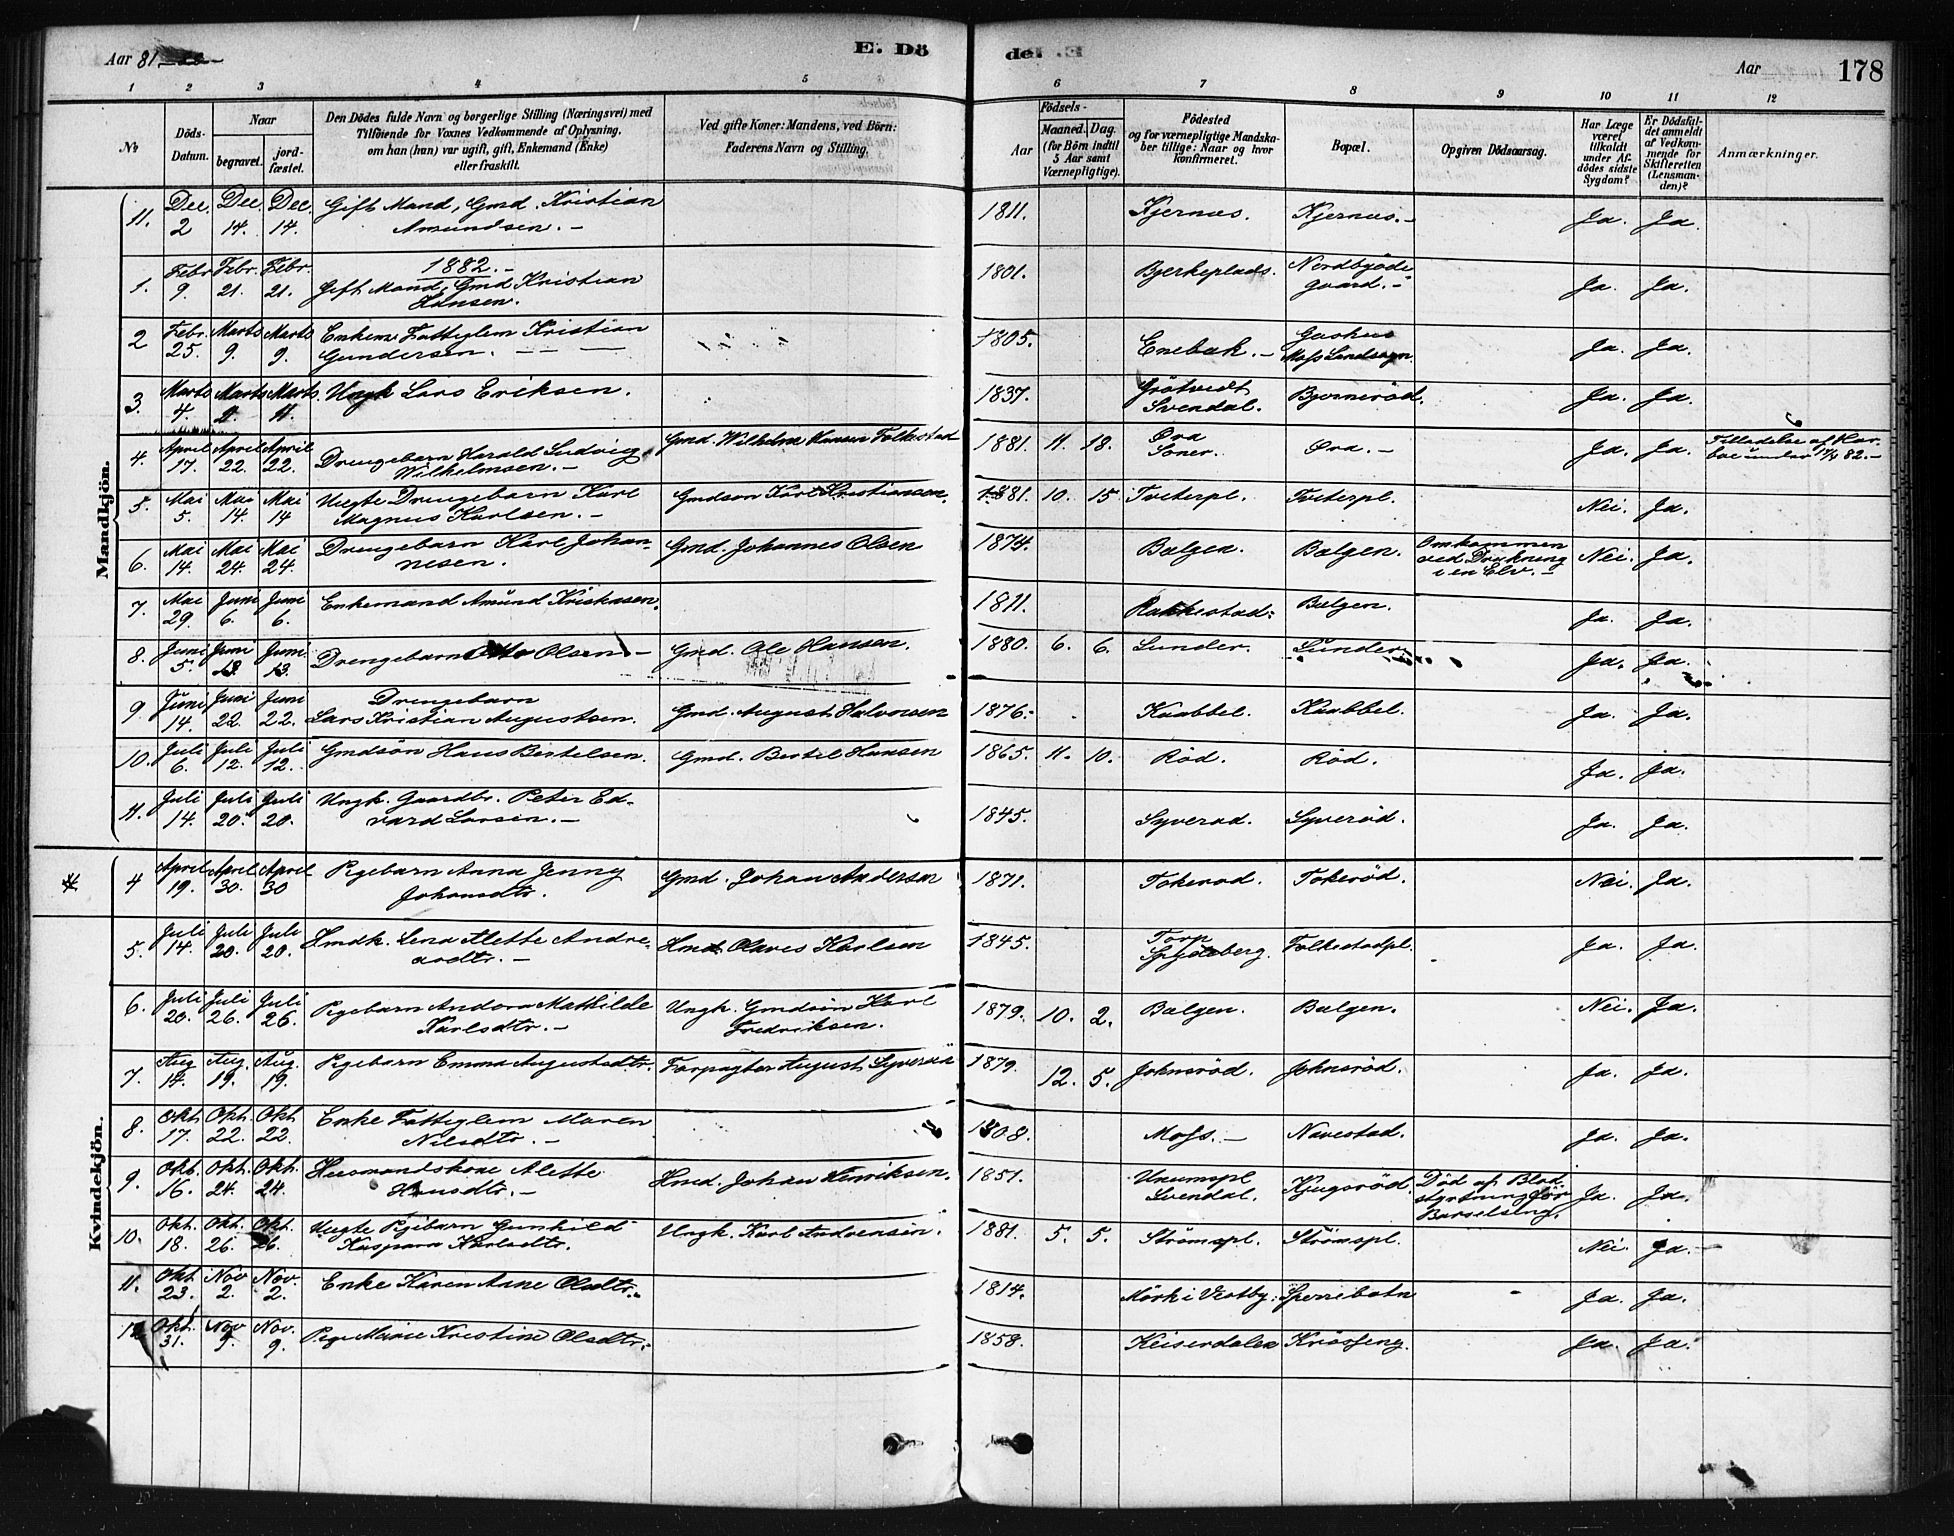 Aar 81
E. Dö
de. E.
Aar 178
1 2 3 4 5 6 7 8 9 10 11 12
No
Döds-Datum.
Naar
begravet.
jord-fæstet.
Den Dödes fulde Navn og borgerlige Stilling (Næringsvei) med
Tilföiende for Voxnes Vedkommende af Oplysning,
om han (hun) var ugift, gift, Enkemand (Enke)
eller fraskilt.
Ved gifte Koner: Mandens, ved Börn:
Faderens Navn og Stilling.
Födsels-
Aar
Maaned. Dag.
(for Börn indtil
5 Aar samt
Værnepligtige).
Födested
og for værnepligtige Mandska-
ber tillige: Naar og hvor
konfirmeret.
Bopæl.
Opgiven Dödsaarsag.
Har Læge
været
tilkaldt
under Af-
dödes sidste
Sygdom?
Er Dödsfal-
det anmeldt
af Vedkom-
mende for
Skifteretten
(Lensman-
den)?
Anmærkninger.
Mandkjön.
11. Dec. 2 Dec. 14. Dec. 14. Gift Mand, Gmd. Kristian
Amundsen. 1811. Kjernes. Kjernes. Ja. Ja.
1882.
1. Febr. 9. Febr. 21. Febr. 21. Gift Mand, Gmd Kristian
Hansen. 1801. Bjerkeplads. Nordbyöde-
gaard. Ja. Ja.
2 Febr. 25. Marts 9. Marts 9. Enkem. Fattiglem Kristian
Gundersen. 1805. Enebak.
Moss Landsogn. Ja. Ja.
3. Marts 4. Marts 11. Marts 11. Ungk Lars Eriksen. 1837. Grötvedt
Svendal. Bjornerød. Ja. Ja.
4. April 17. April 22. April 22. Drengebarn Harald Ludvig
Wilhelmsen. Gmd. Wilhelm Hansen Folkestad 1881. 11. 18. Øra
Soner. Øra. Ja. Ja. Tilladelse af
82.
5. Mai 5. Mai 14. Mai 14 Uægte Drengebarn Karl
Magnus Karlsen. Gmdsøn Karl Kristiansen. 1881. 10. 15. Tveterpl. Tveterpl. Nei. Ja.
6. Mai 14. Mai 24. Mai 24. Drengebarn Karl Johan-
nesen. Gmd. Johannes Olsen 1874. Bølgen. Bølgen. Omkommen
ved Drukning
i en Elv. Nei. Ja.
7. Mai 29. Juni 6. Juni 6. Enkemand Amund Kriskasen. 1811. Rakkestad. Bølgen. Ja. Ja.
8. Juni 5. Juni 13. Juni 13. Drengebarn Otto Olsen Gmd. Ole Hansen. 1880. 6. 6. Sunder. Sunder. Ja. Ja.
9. Juni 14. Juni 22. Juni 22. Drengebarn
Lars Kristian Augustsen. Gmd. August Halvorsen 1876. Knabbel. Knabbel. Ja. Ja.
10. Juli 6. Juli 12. Juli 12. Gmdsön Hans Bertelsen. Gmd. Bertel Hansen 1865. 11. 10. Röd. Röd. Ja. Ja.
11. Juli 14. Juli 20. Juli 20. Ungk. Gaardbr. Peter Ed-
vard Larsen. 1845. Syverød. Syveröd. Ja. Ja.
Kvindekjön.
4 April 19. April 30. April 30 Pigebarn Anna Jenny
Johansdtr. Gmd. Johan Andersen 1871. Tokerød. Tokeröd. Nei. Ja.
5. Juli 14. Juli 20. Juli 20. Hmdk. Lena Alette Andre-
asdtr. Hmd. Olaves Karlsen 1845. Torp
Spydeberg. Folkestadpl. Ja. Ja.
6. Juli 20. Juli 26. Juli 26. Pigebarn Andora Mathilde
Karlsdtr. Ungk. Gmdsön Karl
Fredriksen. 1879. 10. 2. Bølgen. Bølgen. Nei. Ja.
7. Aug 14. Aug. 19. Aug. 19. Pigebarn Emma Augustsdtr. Forpagter August Syveröd 1879. 12. 5. Johnsröd. Johnsröd. Ja. Ja.
8. Okt 17. Okt. 22. Okt 22. Enke Fattiglem Maren
Nilsdtr. 1808. Moss. Navestad. Ja. Ja.
9. Okt. 16. Okt. 24. Okt. 24. Husmandskone Alette
Hansdtr. Hmd. Johan Henriksen. 1851. Unumspl
Svendal. Kjugsröd. Död af Blod-
styrtning før
Barselseng. Ja. Ja.
10. Okt. 18. Okt. 26. Okt. 26. Uægte Pigebarn Gunhild
Kaspara Karlsdtr. Ungk. Karl Andersen. 1881. 5. 5. Strömspl. Strömspl. Nei. Ja.
11. Okt 23. Nov 2. Nov. 2. Enke Karen Anne Olsdtr. 1814. Mörk i Vestby. Sperrebotn Ja. Ja.
12 Okt. 31. Nov 9. Nov. 9. Pige Marie Kristine Olsdtr. 1858. Keiserdalen Krösseng. Ja. Ja.